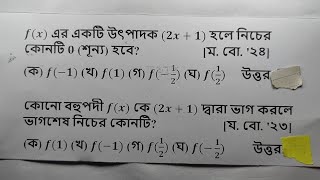 f(x) এর একটি উৎপাদক (2x + 1) হলে নিচের
কোনটি 0 (শূন্য) হবে? [ম. বো. '২৪]
(ক) f(−1) (খ) f(1) (গ) f(−1/2) (ঘ) f(1/2) উত্তর
কোনো বহুপদী f(x) কে (2x + 1) দ্বারা ভাগ করলে
ভাগশেষ নিচের কোনটি? [য. বো. '২৩]
(ক) f(1) (খ) f(−1) (গ) f(1/2) (ঘ) f(−1/2) উত্তর